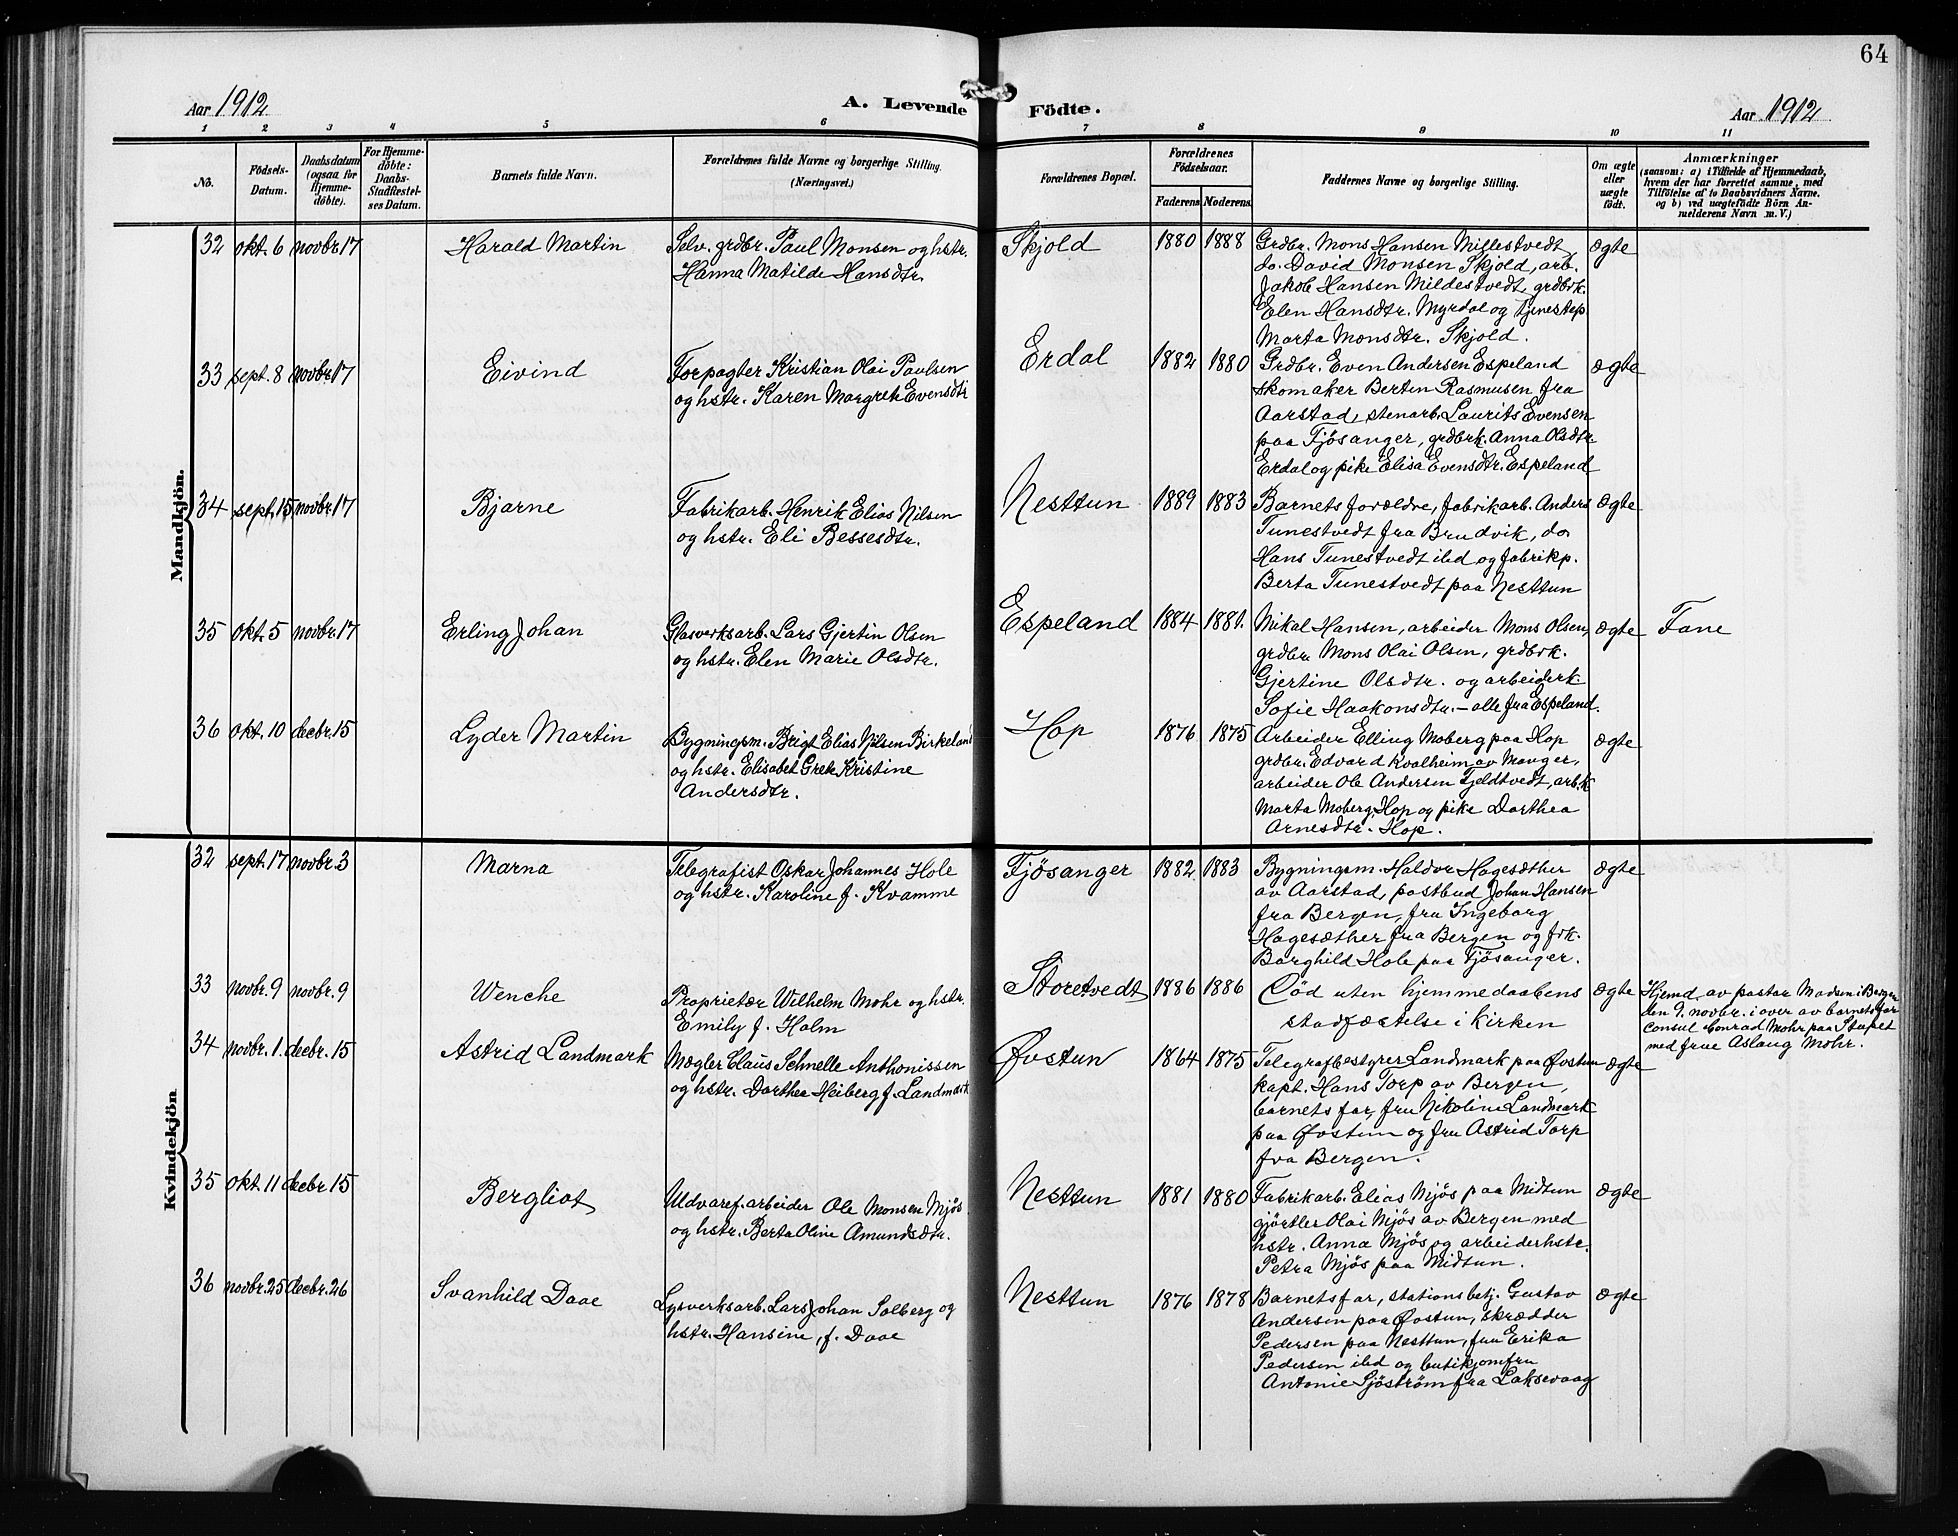 64
Aar 1912
A. Levende Födte.
Aar 1912
1 2 3 4 5 6 7 8 9 10 11
No.
Födsels-Datum.
Daabsdatum (ogsaa for Hjemme-döbte).
For Hjemme-döbte: Daabs-Stadfæstel-ses Datum.
Barnets fulde Navn.
Forældrenes fulde Navne og borgerlige Stilling.
(Næringsvei.)
Forældrenes Bopæl.
Forældrenes Födselsaar.
Faderens Moderens
Faddernes Navne og borgerlige Stilling.
Om ægte eller uægte födt.
Anmærkninger
(saasom: a) i Tilfælde af Hjemmedaab,
hvem der har forrettet samme, med
Tilföielse af to Daabsvidners Navne.
og b) ved uægtefödte Börn An-
melderens Navn m. V.)
Mandkjön.
32 okt. 6 novbr. 17 Harald Martin Selv. grdbr. Paul Monsen og hstr. Skjold 1880 1888 Grdbr. Mons Hansen Millestvedt ægte
Hanna Matilde Hansdtr. do. David Monsen Skjold, arb.
Jakob Hansen Mildestvedt, grdbrk.
Elen Hansdtr. Myrdal og tjenestep.
Marta Monsdtr. Skjold.
33 sept. 8 novbr. 17 Eivind Forpagter Kristian Olai Paulsen Erdal 1882 1880 Grdbr. Even Andersen Espeland ægte
og hstr. Karen Margrete Evensdtr skomaker Bertin Rasmusen fra
Aarstad, stenarb. Laurits Evensen
paa Fjösanger, grdbrk. Anna Olsdtr.
Erdal og pike Elisa Evensdtr. Espeland
34 sept. 15 novbr. 17 Bjarne Fabrikarb. Henrik Elias Nilsen Nesttun 1889 1883 Barnets forældre, fabrikarb. Anders ægte
og hstr. Eli Bessesdtr. Tunestvedt fra Brudvik, do
Hans Tunestvedt ibd og fabrikp.
Berta Tunestvedt paa Nesttun
35 okt. 5 novbr. 17 Erling Johan Glasverksarb. Lars Gjertin Olsen Espeland 1884 1881. Mikal Hansen, arbeider Mons Olsen, ægte Fane
og hstr. Elen Marie Olsdtr. grdbr. Mons Olai Olsen, grdbrk.
Gjertine Olsdtr. og arbeiderk
Sofie Haakonsdtr. - alle fra Espeland.
36 okt. 10 decbr. 15 Lyder Martin Bygningsm. Brigt Elias Nilsen Birkeland Hop 1876 1875 Arbeider Elling Moberg paa Hop ægte
og hstr. Elisabet Grete Kristine grdbr. Edvard Kvalheim av Manger,
Andersdtr. arbeider Ole Andersen Fjeldtvedt, arb.k
Marta Moberg, Hop og pike Dorthea
Arnesdtr. Hop.
Kvindekjön
32 sept. 17 novbr. 3 Marna Telegrafist Oskar Johannes Hole Fjösanger 1882 1883 Bygningsm. Haldor Hagesæther ægte
og hstr. Karoline f. Kvamme av Aarstad, postbud Johan Hansen
fra Bergen, fru Ingeborg
Hagesæther fra Bergen og frk.
Borghild Hole paa Fjösanger.
33 novbr. 9 novbr. 9 Wenche Proprietær Wilhelm Mohr og hstr. Storetvedt 1886 1886 Död uten hjemmedaabens ægte Hjemd. av pastor Madsen i Bergen
Emily f. Holm stadfæstelse i kirken den 9. novbr. i over av barnets far
consul Conrad Mohr paa Stapet
med frue Aslaug Mohr.
34 novbr. 1. decbr. 15 Astrid Landmark Mægler Claus Schnelle Anthonissen Øvstun 1864 1875 Telegrafbestyrer Landmark paa Øvstun ægte
og hstr. Dorthea Heiberg f. Landmark kapt. Hans Torp av Bergen,
barnets far, fru Nikoline Landmark
paa Øvstun og fru Astrid Torp
fra Bergen.
35 okt. 11 decbr. 15 Bergliot Uldvaref.arbeider Ole Monsen Mjös Nesttun 1881 1880 Fabrikarb. Elias Mjös paa Midtun ægte
og hstr. Berta Oline Amundsdtr. gjörtler Olai Mjös av Bergen med
hstr. Anna Mjös og arbeiderhstr.
Petra Mjös paa Midtun.
36 novbr. 25 decbr. 26 Svanhild Daae Lysverksarb. Lars Johan Solberg og Nesttun 1876 1878 Barnets far, stationsbetj. Gustav ægte
hstr. Hansine, f. Daae Andersen paa Øvstun, skrædder
Pedersen paa Nesttun, fru Erika
Pedersen ibd og butikjomfru
Antonie Sjöström fra Laksevaag